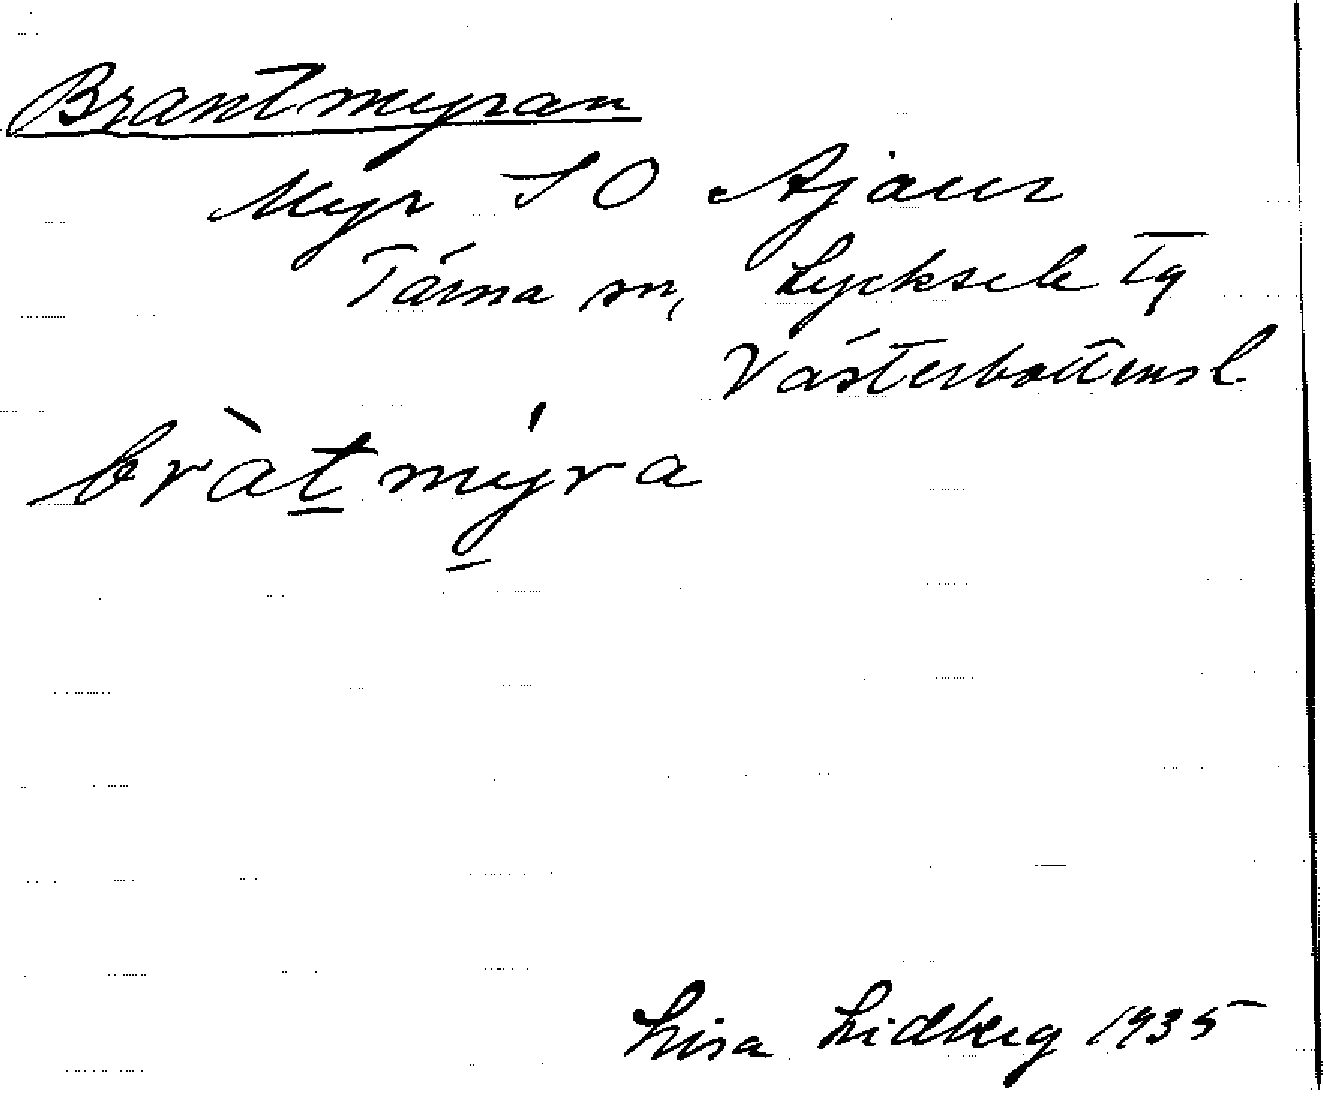 Brantmyran
Myr SO Ajaur
Tärna sn, Lycksele Tg
Västerbottens l.
bràt̲mýra
Lisa Lidberg 1935